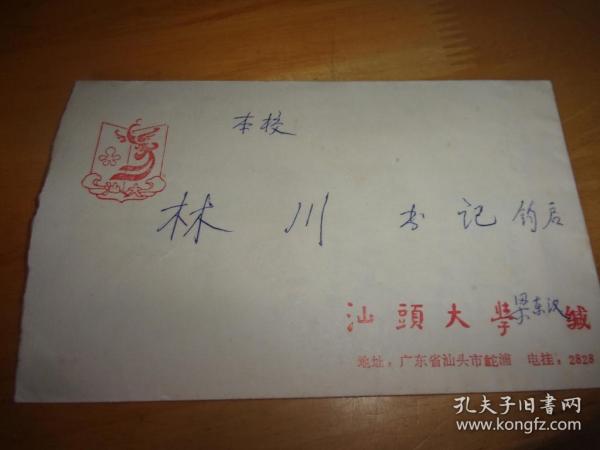 本校
林川书记 钧启
汕頭大學 梁东汉 缄
地址：广东省汕头市鮀浦 电挂：2828
孔夫子旧书网
www.kongfz.com